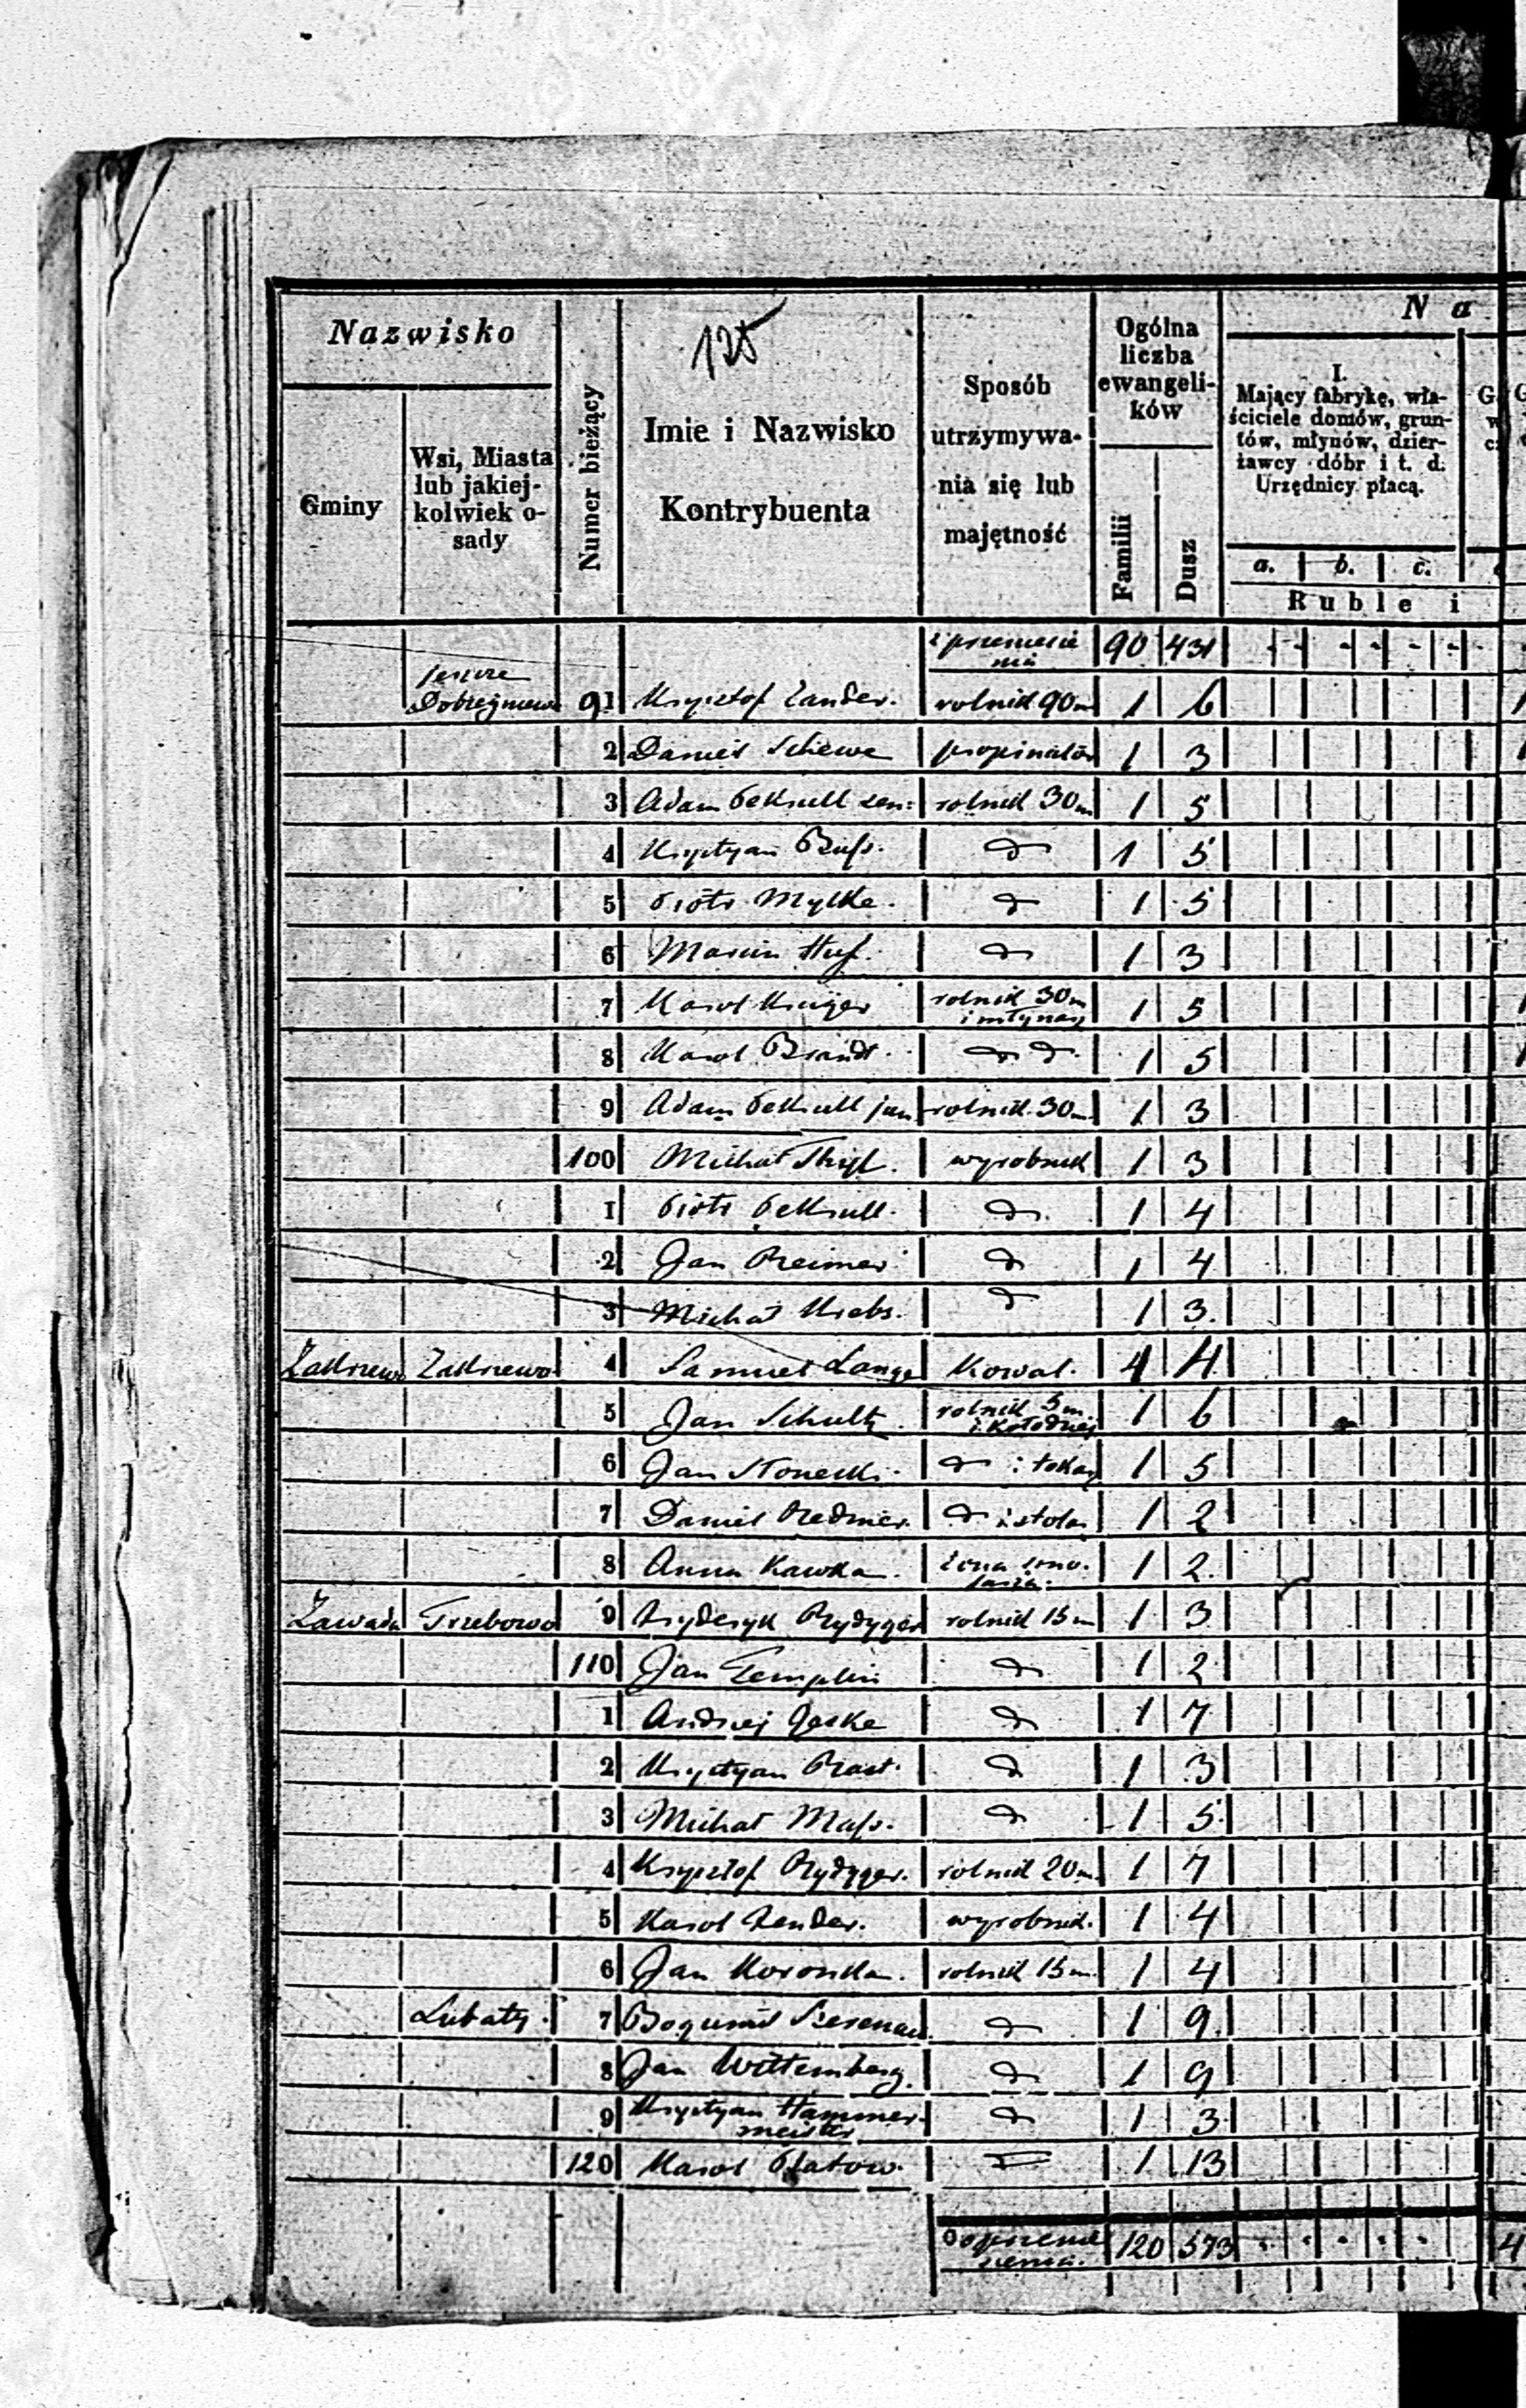 Nazwisko
Gminy
Wsi, Miasta
lub jakiej-
kolwiek o-
sady
Numer bieżący
125
Imie i Nazwisko
Kontrybuenta
Sposób
utrzymywa-
nia się lub
majętność
Ogólna
liczba
ewangeli-
ków
Familii
Dusz
N a
I.
Mający fabrykę, wła-
ściciele domów, grun-
tów, młynów, dzier-
żawcy dóbr i t. d.
Urzędnicy płacą.
a. b. c.
Ruble i
z przeniesie
nia 90 431
91 Krysztof Zander. rolnik 90 m 1 6
2 Daniel Schewe propinator 1 3
3 Adam Petkrull sen: rolnik 30 m 1 5
4 Krystyan Buss. d 1 5
5 Piotr Mylke. d 1 5
6 Marcin Huf. d 1 3
7 Karol Krüger rolnik 30 m
i młynarz 1 5
8 Karol Brandt. d d 1 5
9 Adam Petkrull jun rolnik 30 m 1 3
100 Michał wyrobnik 1 3
1 Piotr Petkrull. d 1 4
2 Jan Reimer d 1 4
3 Michał Krebs. d 1 3.
Zakrzewo Zakrzewo 4 Samuel Lange Kowal. 4
5 Jan Schultz rolnik 5 m
i Kołodziej 1 6
6 Jan Słonecki. d i tokarz 1 5
7 Daniel Redmer. d i stolar 1 2
8 Anna Kawka. żona 1 2.
Zawada Trzebowo 9 Fryderyk Rydyger rolnik 15 m 1 3
110 Jan Templin d 1 2
1 Andrzej Jeske d 1 7
2 Krystyan Rast. d 1 3
3 Michał Mass. d 1 5
4 Krysztof Rydyger. rolnik 20 m 1 7
5 Karol Zender. wyrobnik. 1 4
6 Jan Koronka. rolnik 15 m 1 4
Lubaty. 7 Bogumił d 1 9
8 Jan Wittemberg. d 1 9
9 Krystyan Hammer-
meister d 1 3
120 Karol Platow. 1 13
Do przenie
sienia. 120 573